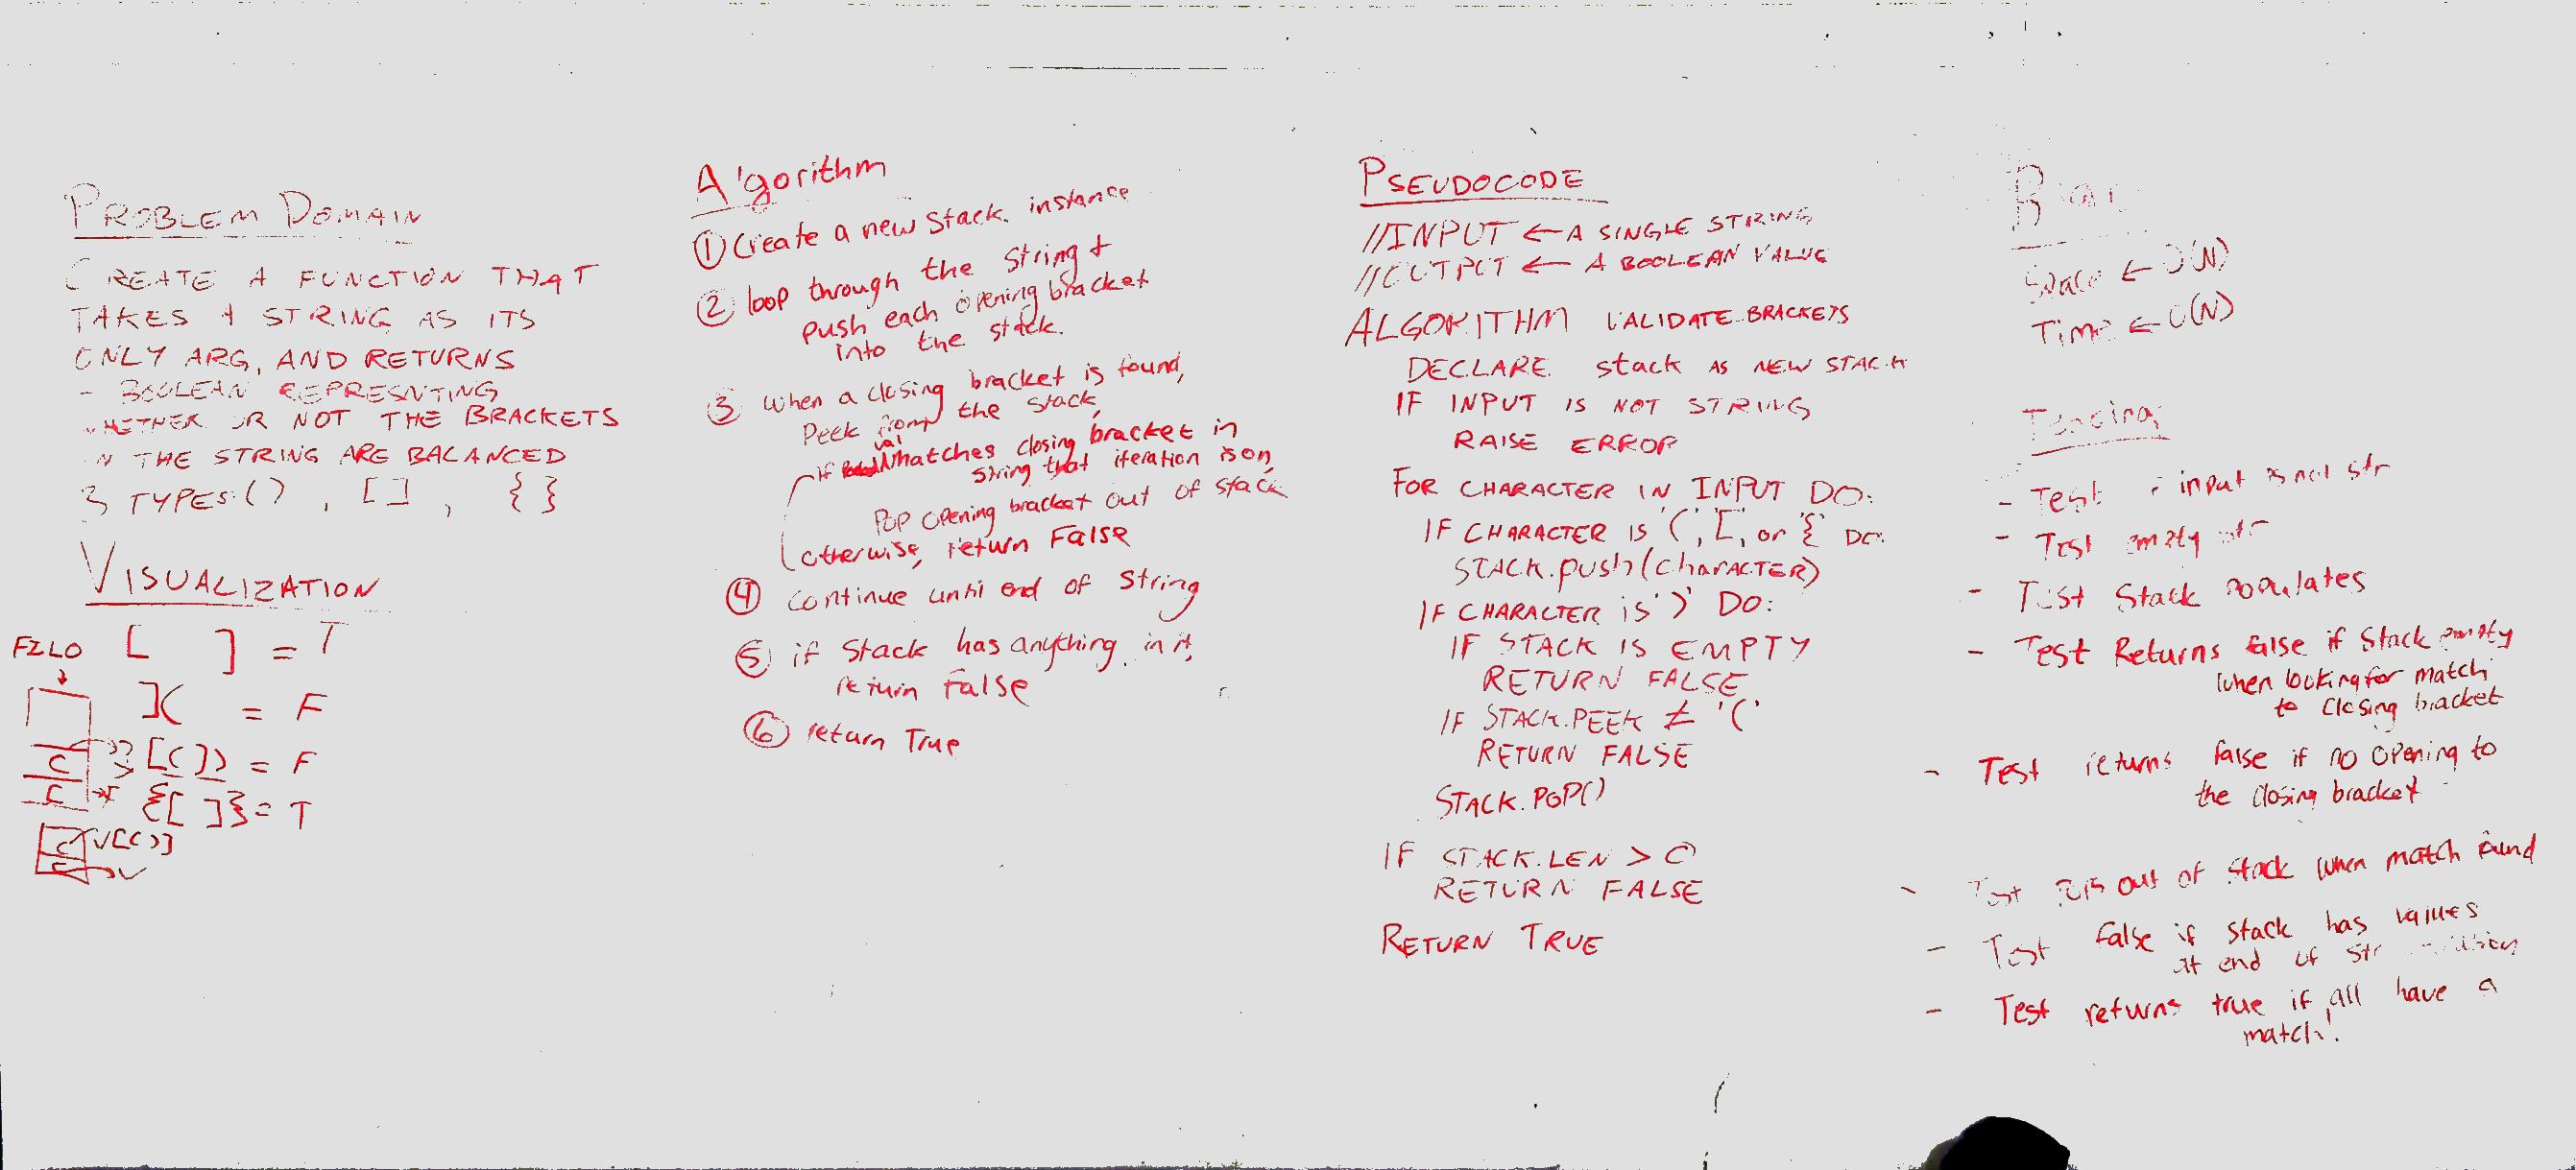 PROBLEM DOMAIN
CREATE A FUNCTION THAT
TAKES A STRING AS ITS
ONLY ARG, AND RETURNS
- BOOLEAN REPRESNTING
WHETHER OR NOT THE BRACKETS
IN THE STRING ARE BALANCED
3 TYPES: () , [] , {}
VISUALIZATION
FILO
[ ] = T
]( = F
[(]) = F
{[ ]} = T
[()]
Algorithm
① Create a new Stack instance
② loop through the string +
push each opening bracket
into the stack.
③ when a closing bracket is found,
Peek from the stack,
if val matches closing bracket in
string that iteration is on,
Pop opening bracket out of stack
otherwise, return False
④ continue until end of string
⑤ if Stack has anything in it,
return False
⑥ return True
PSEUDOCODE
//INPUT ← A SINGLE STRING
//OUTPUT ← A BOOLEAN VALUE
ALGORITHM VALIDATE-BRACKETS
DECLARE stack AS NEW STACK
IF INPUT IS NOT STRING
RAISE ERROR
FOR CHARACTER IN INPUT DO:
IF CHARACTER IS '(', '[', or '{' DO:
STACK.push(CHARACTER)
IF CHARACTER is ')' DO:
IF STACK IS EMPTY
RETURN FALSE
IF STACK.PEEK ≠ '('
RETURN FALSE
STACK.POP()
IF STACK.LEN > 0
RETURN FALSE
RETURN TRUE
Space ← O(N)
Time ← O(N)
Testing
- Test input is not str
- Test empty str
- Test Stack populates
- Test Returns false if Stack empty
when looking for match
to closing bracket
- Test returns false if no opening to
the closing bracket
- Test pops out of stack when match found
- Test false if stack has values
at end of str
- Test returns true if all have a
match!